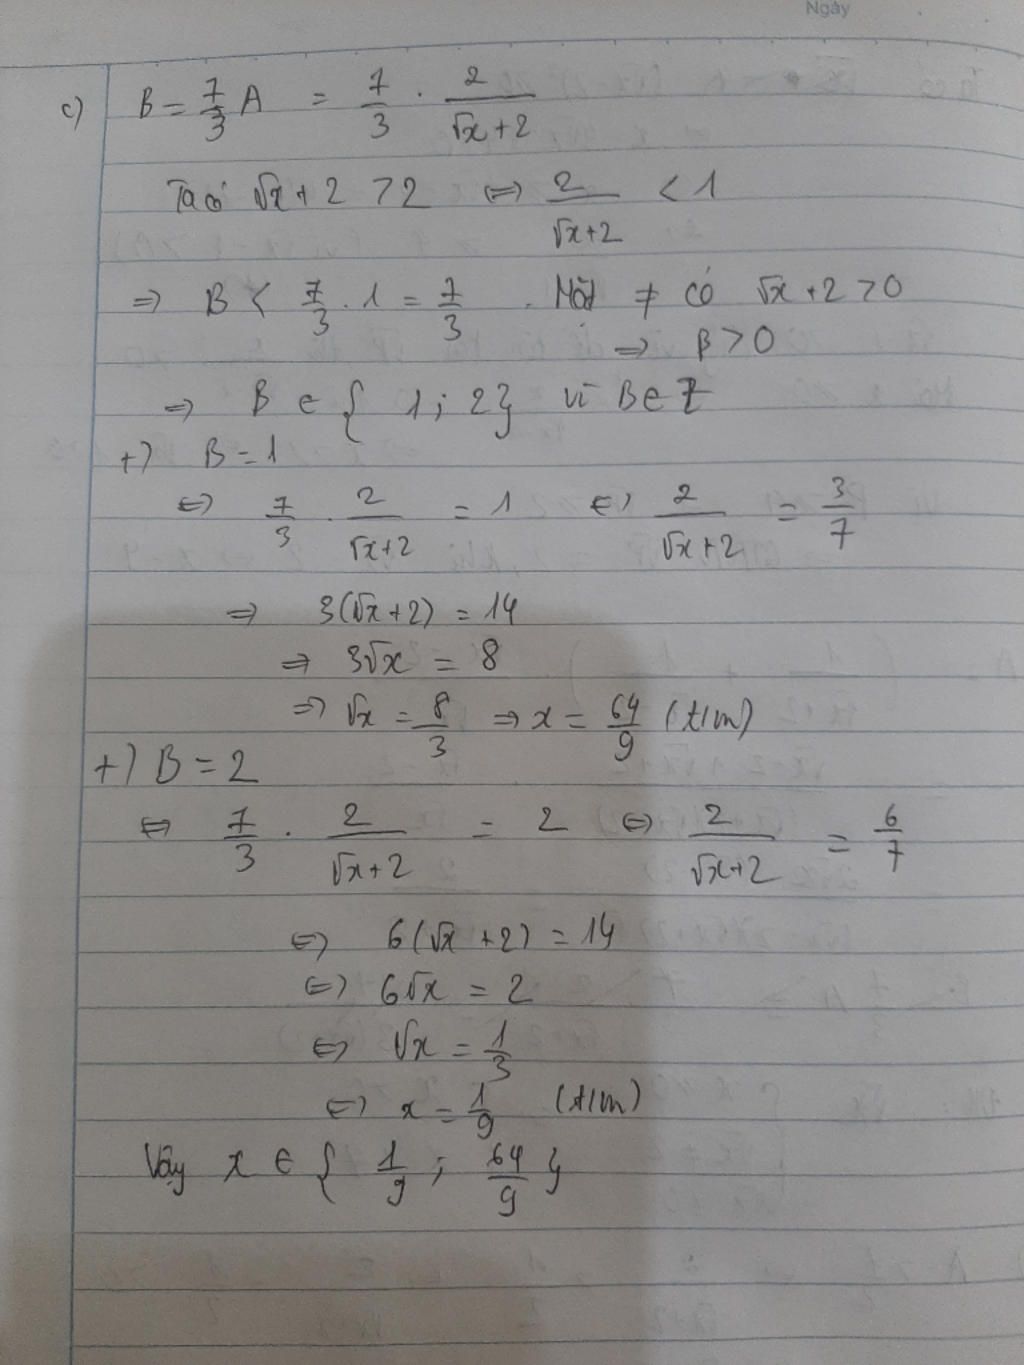 Ngày
c) B = 7/3 A = 7/3 . 2/(√x+2)
Ta có √x + 2 > 2 ⇔ 2/(√x+2) < 1
⇒ B < 7/3 . 1 = 7/3 . Mặt ≠ có √x + 2 > 0
⇒ B > 0
⇒ B ∈ { 1 ; 2 } vì B ∈ Z
+) B = 1
⇔ 7/3 . 2/(√x+2) = 1 ⇔ 2/(√x+2) = 3/7
⇒ 3(√x + 2) = 14
⇒ 3√x = 8
⇒ √x = 8/3 ⇒ x = 64/9 (t/m)
+) B = 2
⇔ 7/3 . 2/(√x+2) = 2 ⇔ 2/(√x+2) = 6/7
⇔ 6(√x + 2) = 14
⇔ 6√x = 2
⇔ √x = 1/3
⇔ x = 1/9 (t/m)
Vậy x ∈ { 1/9 ; 64/9 }